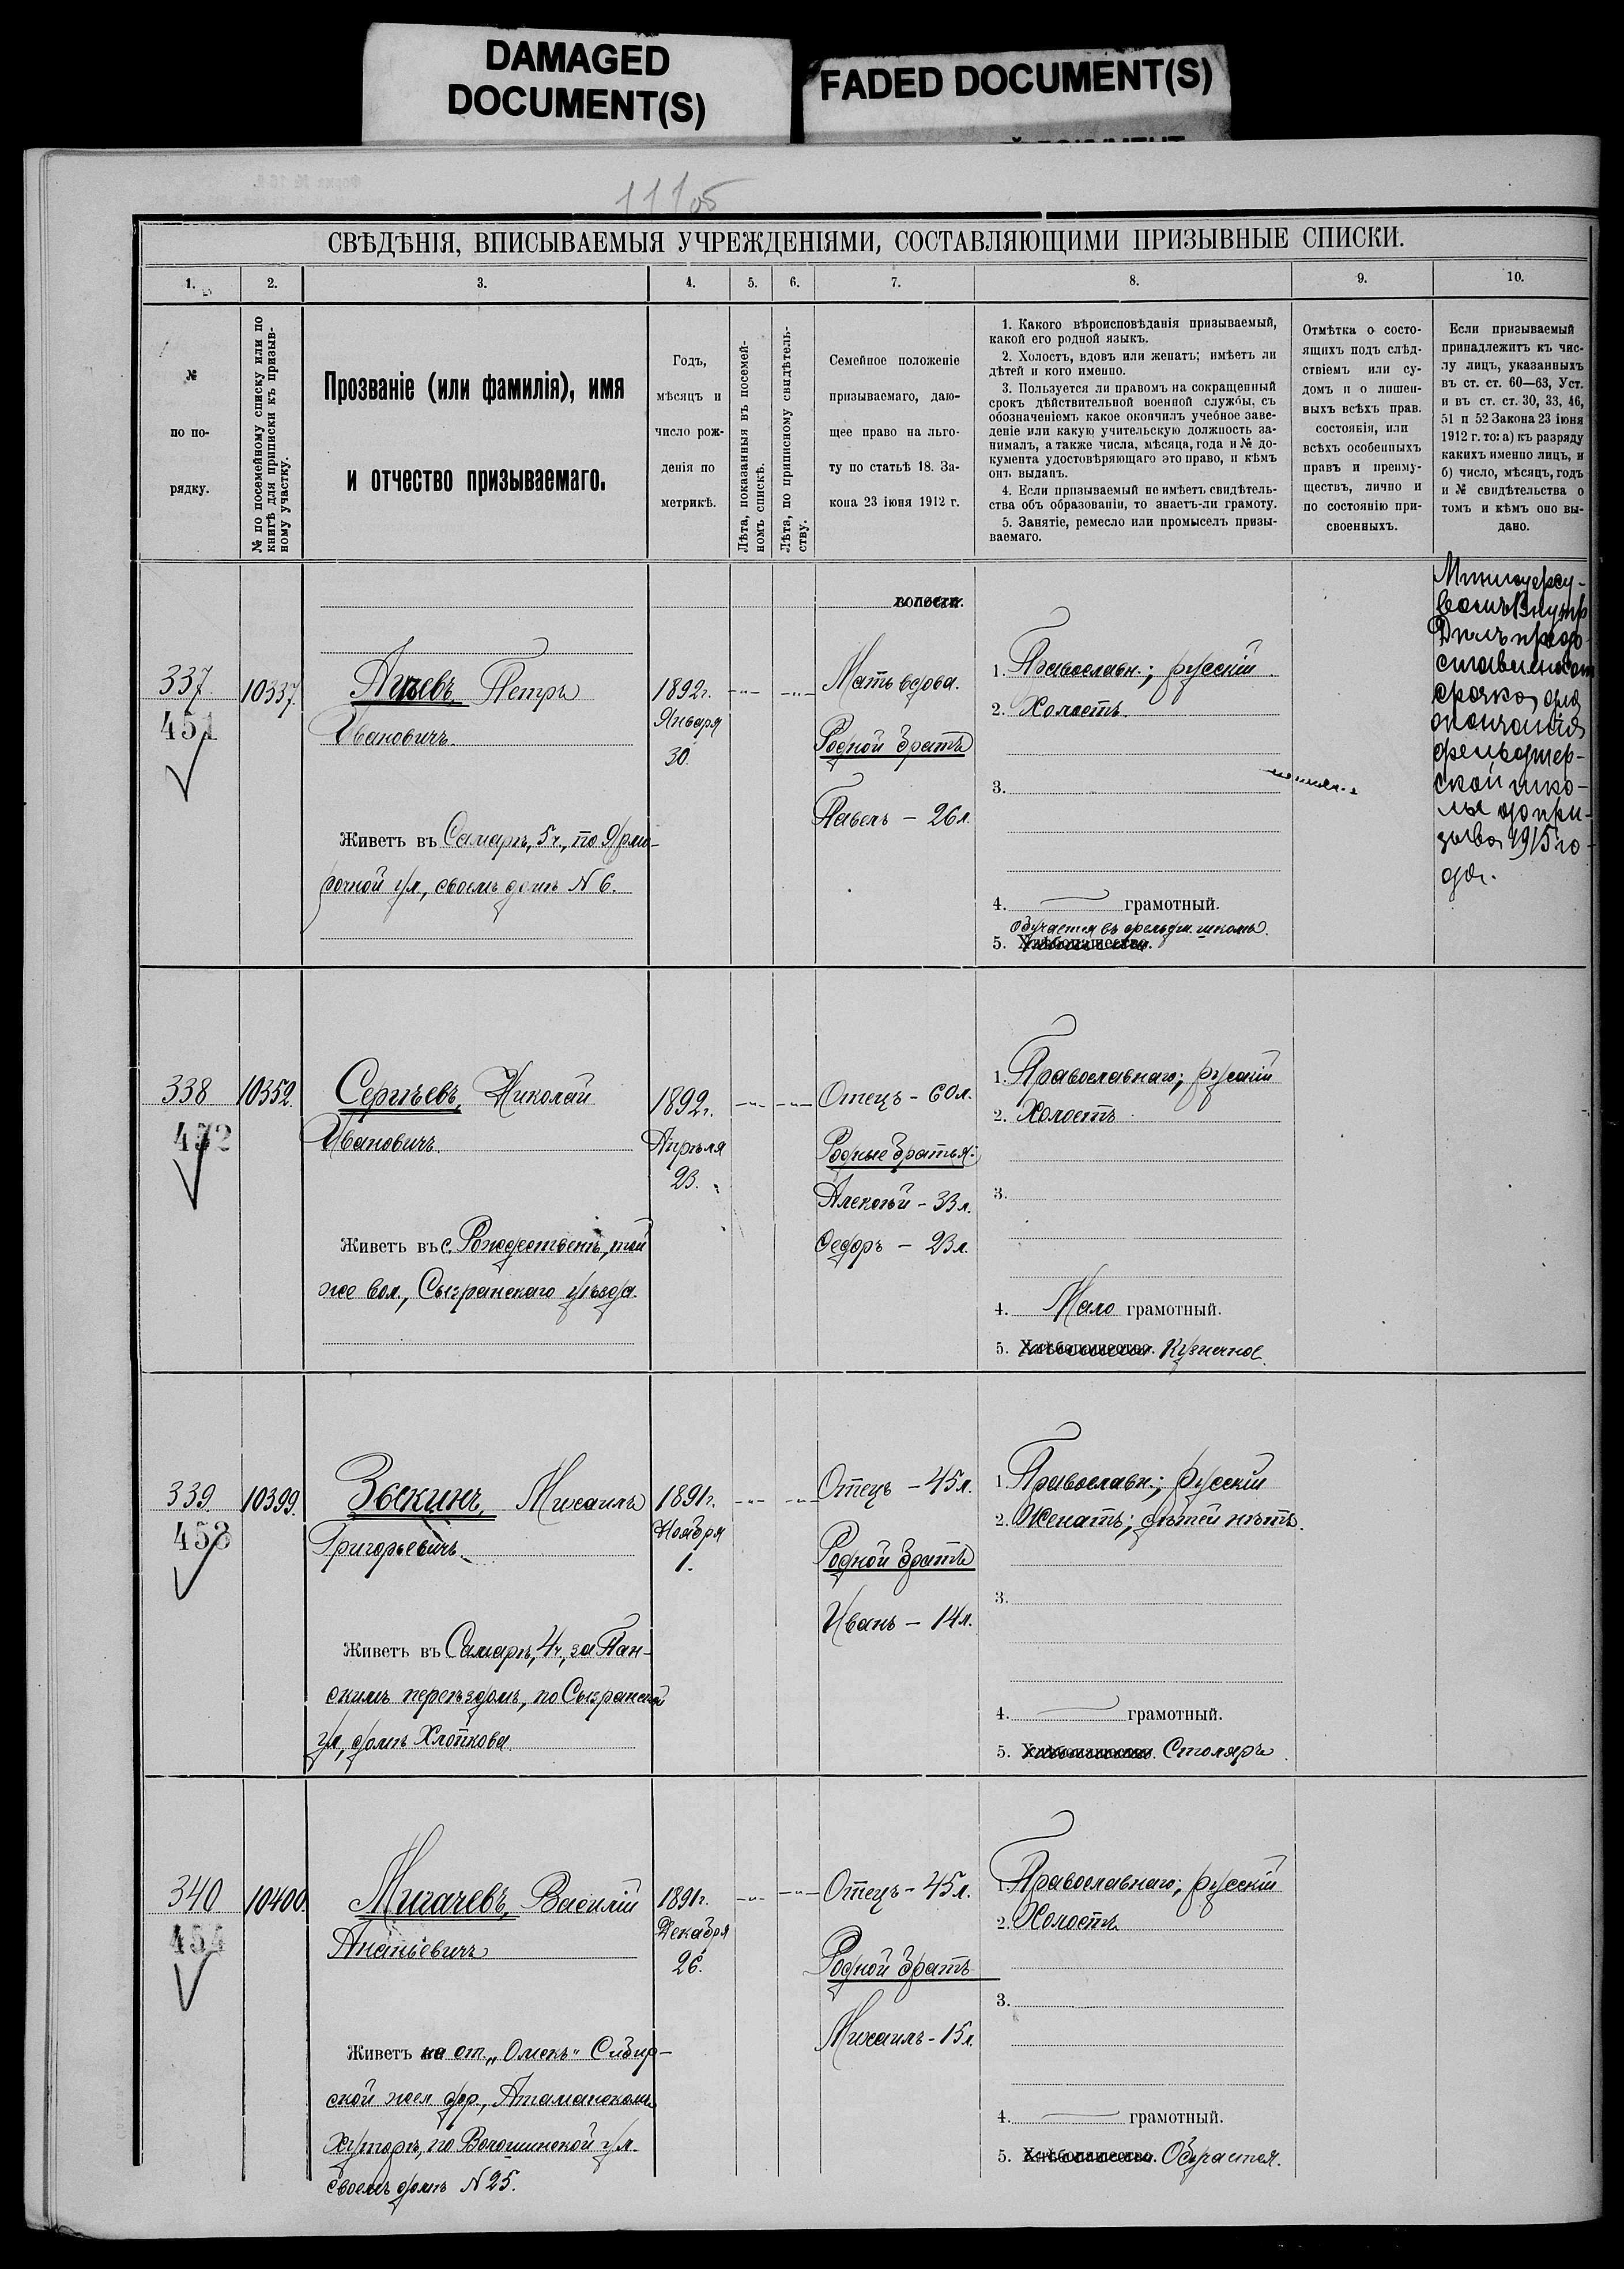 DAMAGED
DOCUMENT(S)
FADED DOCUMENT(S)
СВѢДѢНІЯ, ВПИСЫВАЕМЫЯ УЧРЕЖДЕНІЯМИ, СОСТАВЛЯЮЩИМИ ПРИЗЫВНЫЕ СПИСКИ.
1. 2. 3. 4. 5. 6. 7. 8. 9. 10.
№
по по-
рядку.
№ по посемейному списку или по
книгѣ для приписки къ призыв-
ному участку.
Прозваніе (или фамилія), имя
и отчество призываемаго.
Годъ,
мѣсяцъ и
число рож-
денія по
метрикѣ.
Лѣта, показанныя въ посемей-
номъ спискѣ.
Лѣта, по приписному свидѣтель-
ству.
Семейное положеніе
призываемаго, даю-
щее право на льго-
ту по статьѣ 18. За-
кона 23 іюня 1912 г.
1. Какого вѣроисповѣданія призываемый,
какой его родной языкъ.
2. Холостъ, вдовъ или женатъ; имѣетъ ли
дѣтей и кого именно.
3. Пользуется ли правомъ на сокращенный
срокъ дѣйствительной военной службы, съ
обозначеніемъ какое окончилъ учебное заве-
деніе или какую учительскую должность за-
нималъ, а также числа, мѣсяца, года и № до-
кумента удостовѣряющаго это право, и кѣмъ
онъ выданъ.
4. Если призываемый не имѣетъ свидѣтель-
ства объ образованіи, то знаетъ-ли грамоту.
5. Занятіе, ремесло или промыселъ призы-
ваемаго.
Отмѣтка о состо-
ящихъ подъ слѣд-
ствіемъ или су-
домъ и о лишен-
ныхъ всѣхъ прав.
состоянія, или
всѣхъ особенныхъ
правъ и преиму-
ществъ, лично и
по состоянію при-
своенныхъ.
Если призываемый
принадлежитъ къ чис-
лу лицъ, указанныхъ
въ ст. ст. 60—63, Уст.
и въ ст. ст. 30, 33, 46,
51 и 52 Закона 23 іюня
1912 г. то: а) къ разряду
какихъ именно лицъ, и
б) число, мѣсяцъ, годъ
и № свидѣтельства о
томъ и кѣмъ оно вы-
дано.
337.
451
10337.
Петръ
Ивановичъ
Живетъ въ Самарѣ, 5 ч., по Ярмо-
рочной ул., своемъ домѣ N 6.
1892 г.
Января
30.
волости.
Мать вдова.
Родной братъ
Павелъ - 26 л.
1. Православн.; русскій
2. Холостъ.
3.
4. грамотный.
Обучается въ фельдш. школѣ.
5. Хлѣбопашество.
Дѣлъ предо-
срочка для
окончанія
фельдшер-
ской шко-
лы до при-
зыва 1915 го-
да.
338
452
10352.
Сергѣевъ, Николай
Ивановичъ.
Живетъ въ с. Рождественѣ, той
же вол., Сызранскаго уѣзда.
1892 г.
Апрѣля
23.
Отецъ - 60 л.
Родные братья:
Алексѣй - 33 л.
Федоръ - 23 л.
1. Православнаго; русскій
2. Холостъ
3.
4. Мало грамотный.
5. Хлѣбопашество.
339.
453
10399.
Звекинъ, Михаилъ
Григорьевичъ.
Живетъ въ Самарѣ, 4 ч., за Пан-
скимъ переѣздомъ, по Сызранской
ул., домъ Хлопкова.
1891 г.
Ноября
1.
Отецъ - 45 л.
Родной братъ
Иванъ - 14 л.
1. Православн.; русскій
2. Женатъ; дѣтей нѣтъ.
3.
4. грамотный.
5. Хлѣбопашество. Столяръ
340
454
10400.
Мигачевъ, Василій
Ананіевичъ
Живетъ на ст. „Омскъ" Сибир-
ской жел. дор., Атаманскомъ
Хуторѣ, по Волошинской ул.
своемъ домѣ N 25.
1891 г.
Декабря
26.
Отецъ - 45 л.
Родной братъ
Михаилъ - 15 л.
1. Православнаго; русскій
2. Холостъ
3.
4. грамотный.
5. Хлѣбопашество. Обучается.